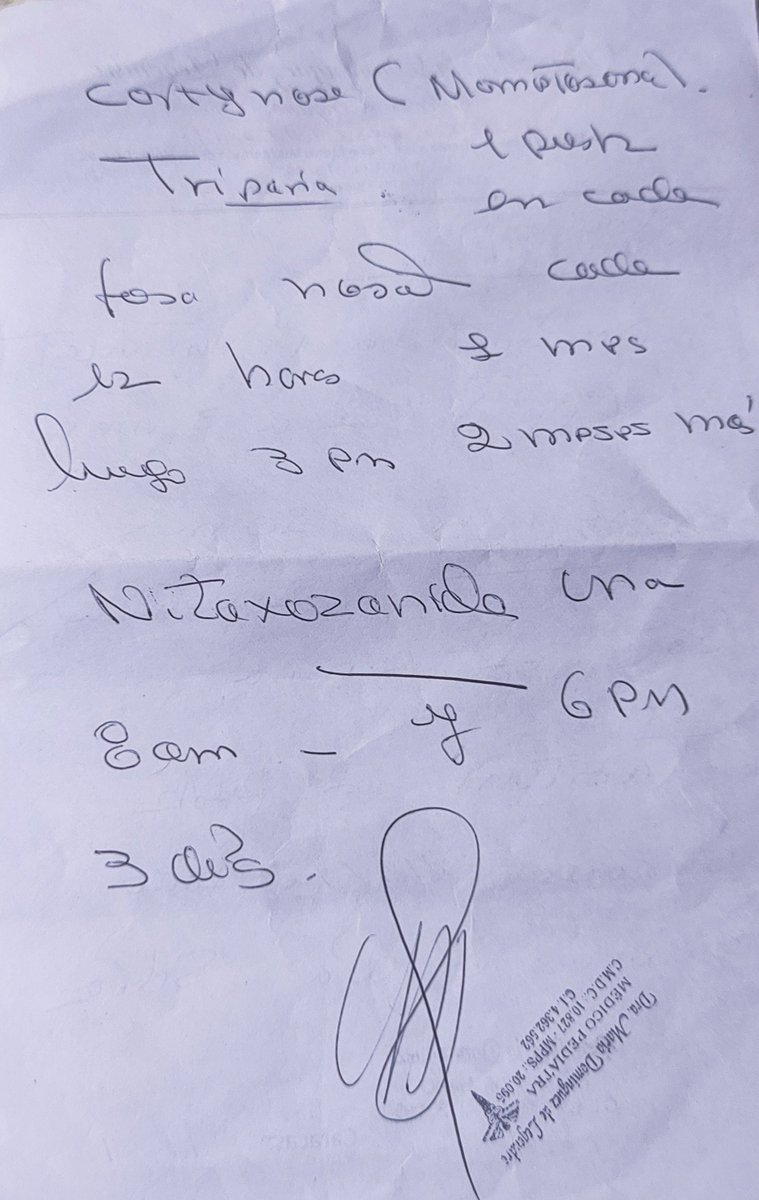 Cortynase (Mometasona).
1 push
Triparia.
en cada
fosa nasal cada
12 horas 1 mes
luego 3 pm 2 meses más
Nitaxozanida una
8 am - y 6 PM
3 días.
Dra. María Dominguez de Legendre
MÉDICO PEDIATRA
C.M.D.C.: 10.827 - MPPS.: 20.095
C.I. 4.362.562
Caracas